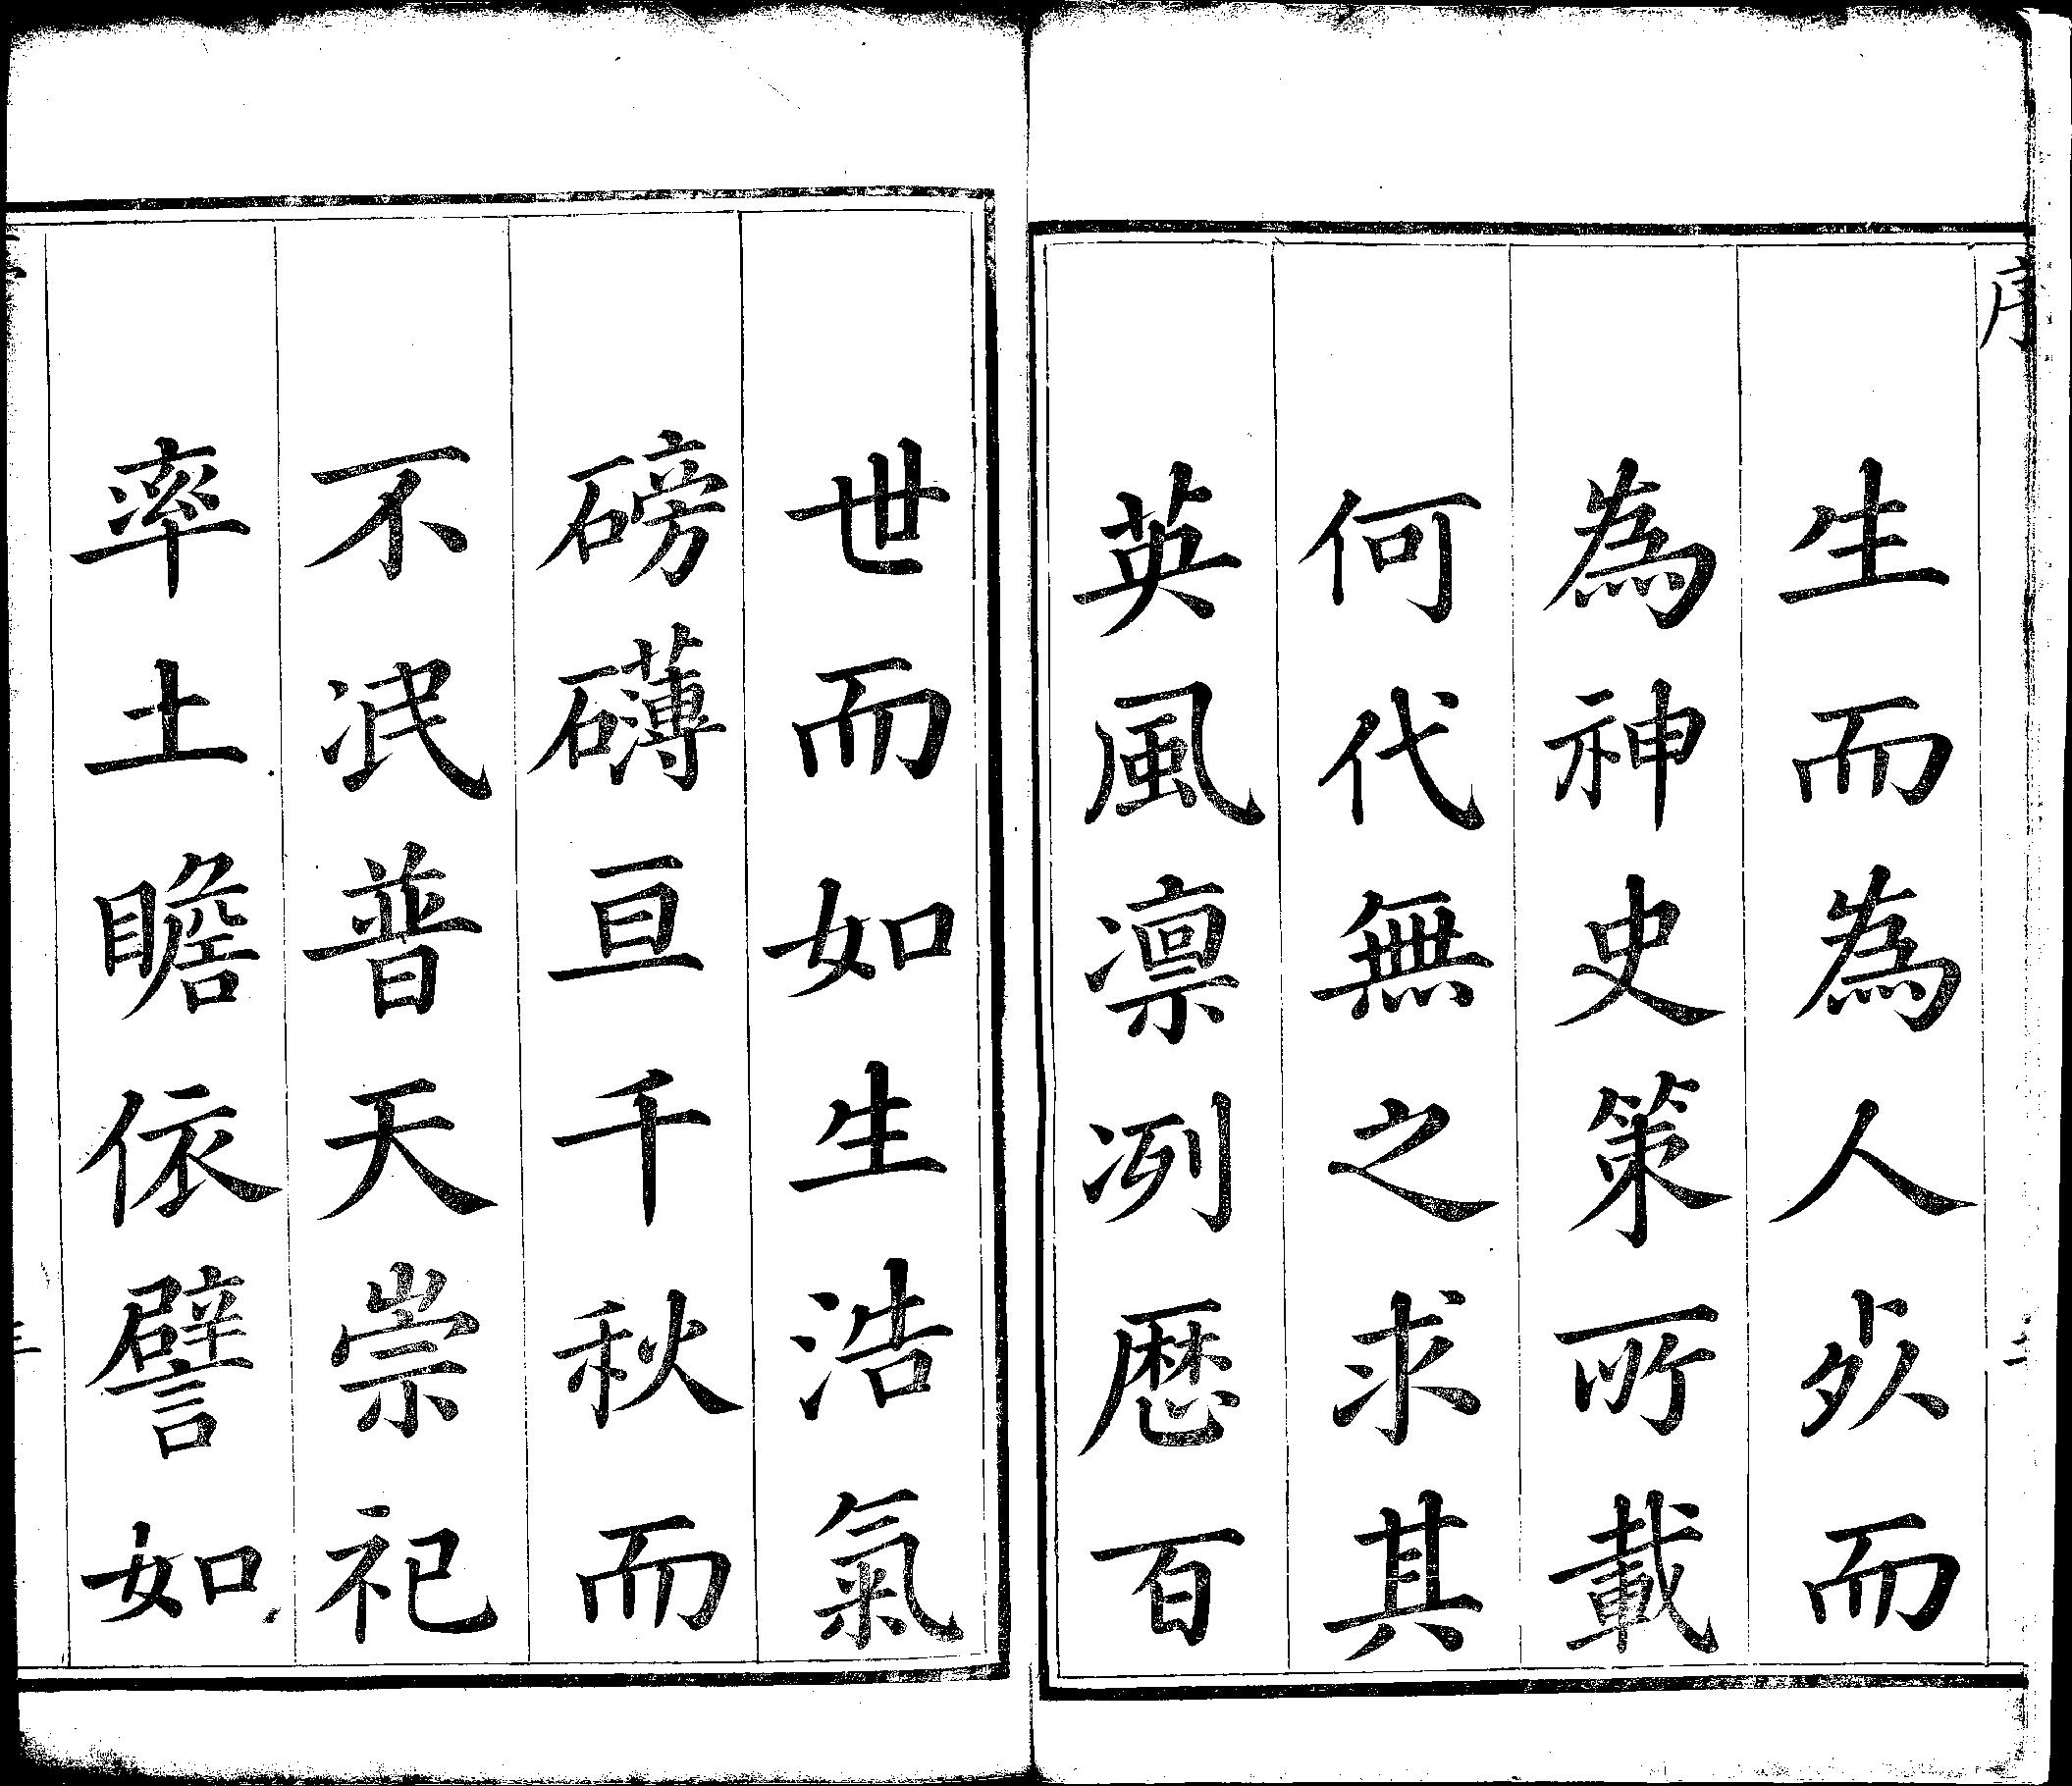 序
二
生而為人歿而
為神史策所載
何代無之求其
英風凛冽歴百
世而如生浩氣
磅礴亘千秋而
不泯普天崇祀
率土瞻依譬如